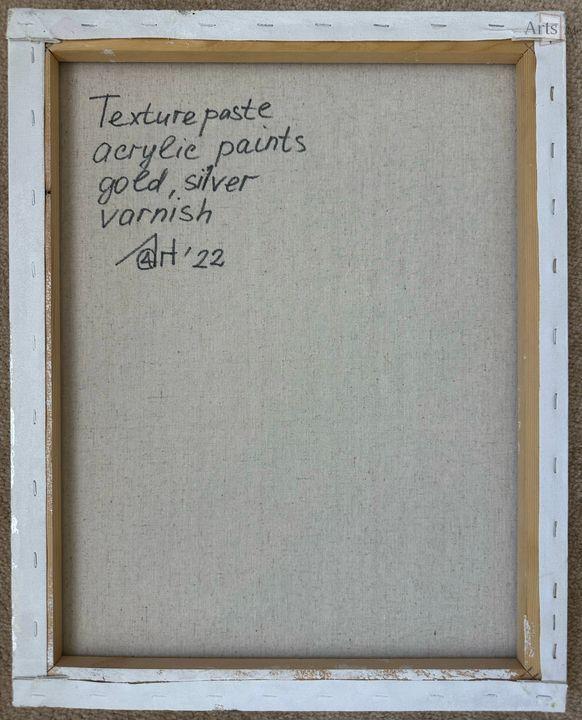 Arts
Texture paste
acrylic, paints
gold, silver
varnish
'22